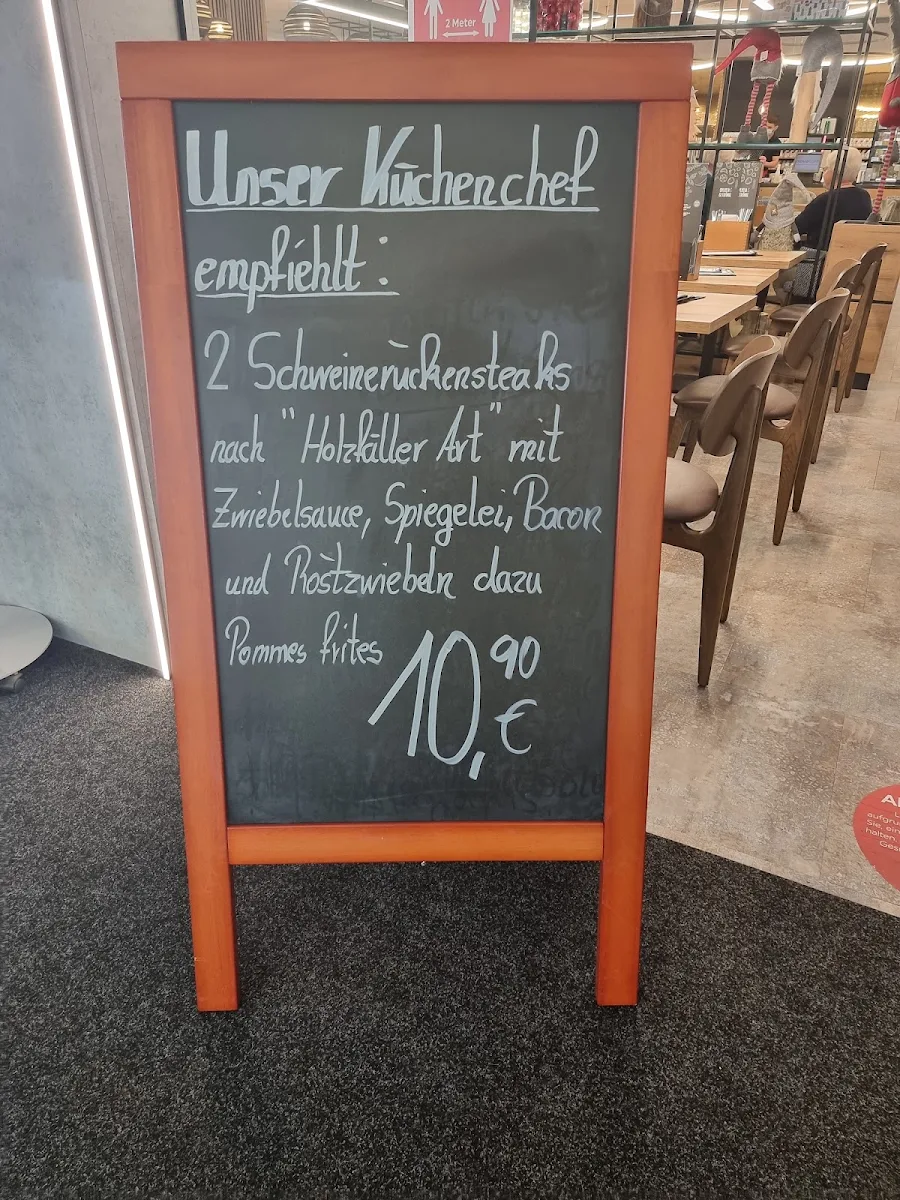 2 Meter
Unser Küchenchef
empfiehlt:
2 Schweinerückensteaks
nach "Holzfäller Art" mit
Zwiebelsauce, Spiegelei, Bacon
und Röstzwiebeln dazu
Pommes frites
10,90
€